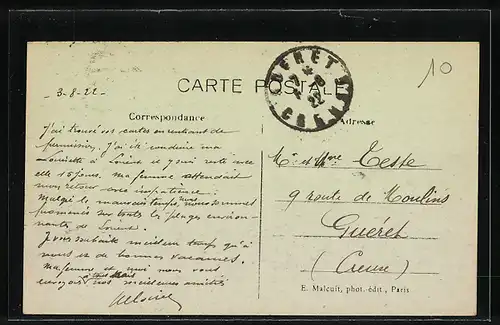 CARTE POSTALE
10
3-8-22-
Correspondance
J'ai trouvé ces cartes en rentrant de
permission. J'ai été conduire ma
Louisette à Lorient et y suis resté avec
elle 15 jours. Ma femme attendait
mon retour avec impatience.
Malgré le mauvais temps nous nous sommes
promenés sur toutes les plages environ-
nantes de Lorient.
Je vous souhaite meilleur temps qu'à
nous et de bonnes vacances.
Ma femme et moi nous vous
envoyons à tous nos meilleures amitiés
Adresse
Mr et Mme Teste
9 route de Moulins
Guéret
(Creuse)
E. Malcuit, phot.-édit., Paris
GUERET
22
CREUSE